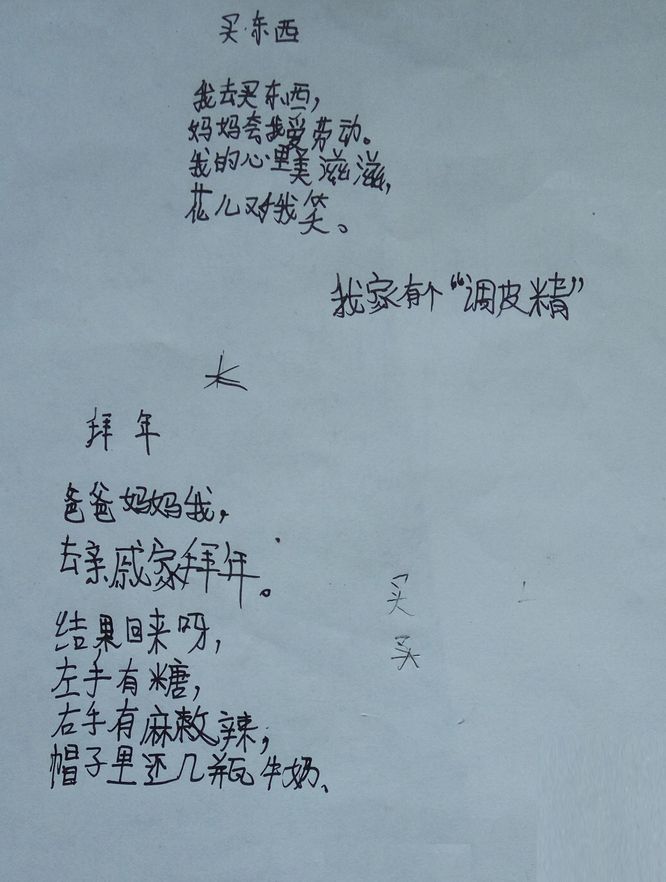 买东西
我去买东西，
妈妈夸我爱劳动。
我的心里美滋滋，
花儿对我笑。
我家有个“调皮精”
拜年
爸爸妈妈我，
去亲戚家拜年。
结果回来呀，
左手有糖，
右手有麻辣，
帽子里还几瓶牛奶、
买
买